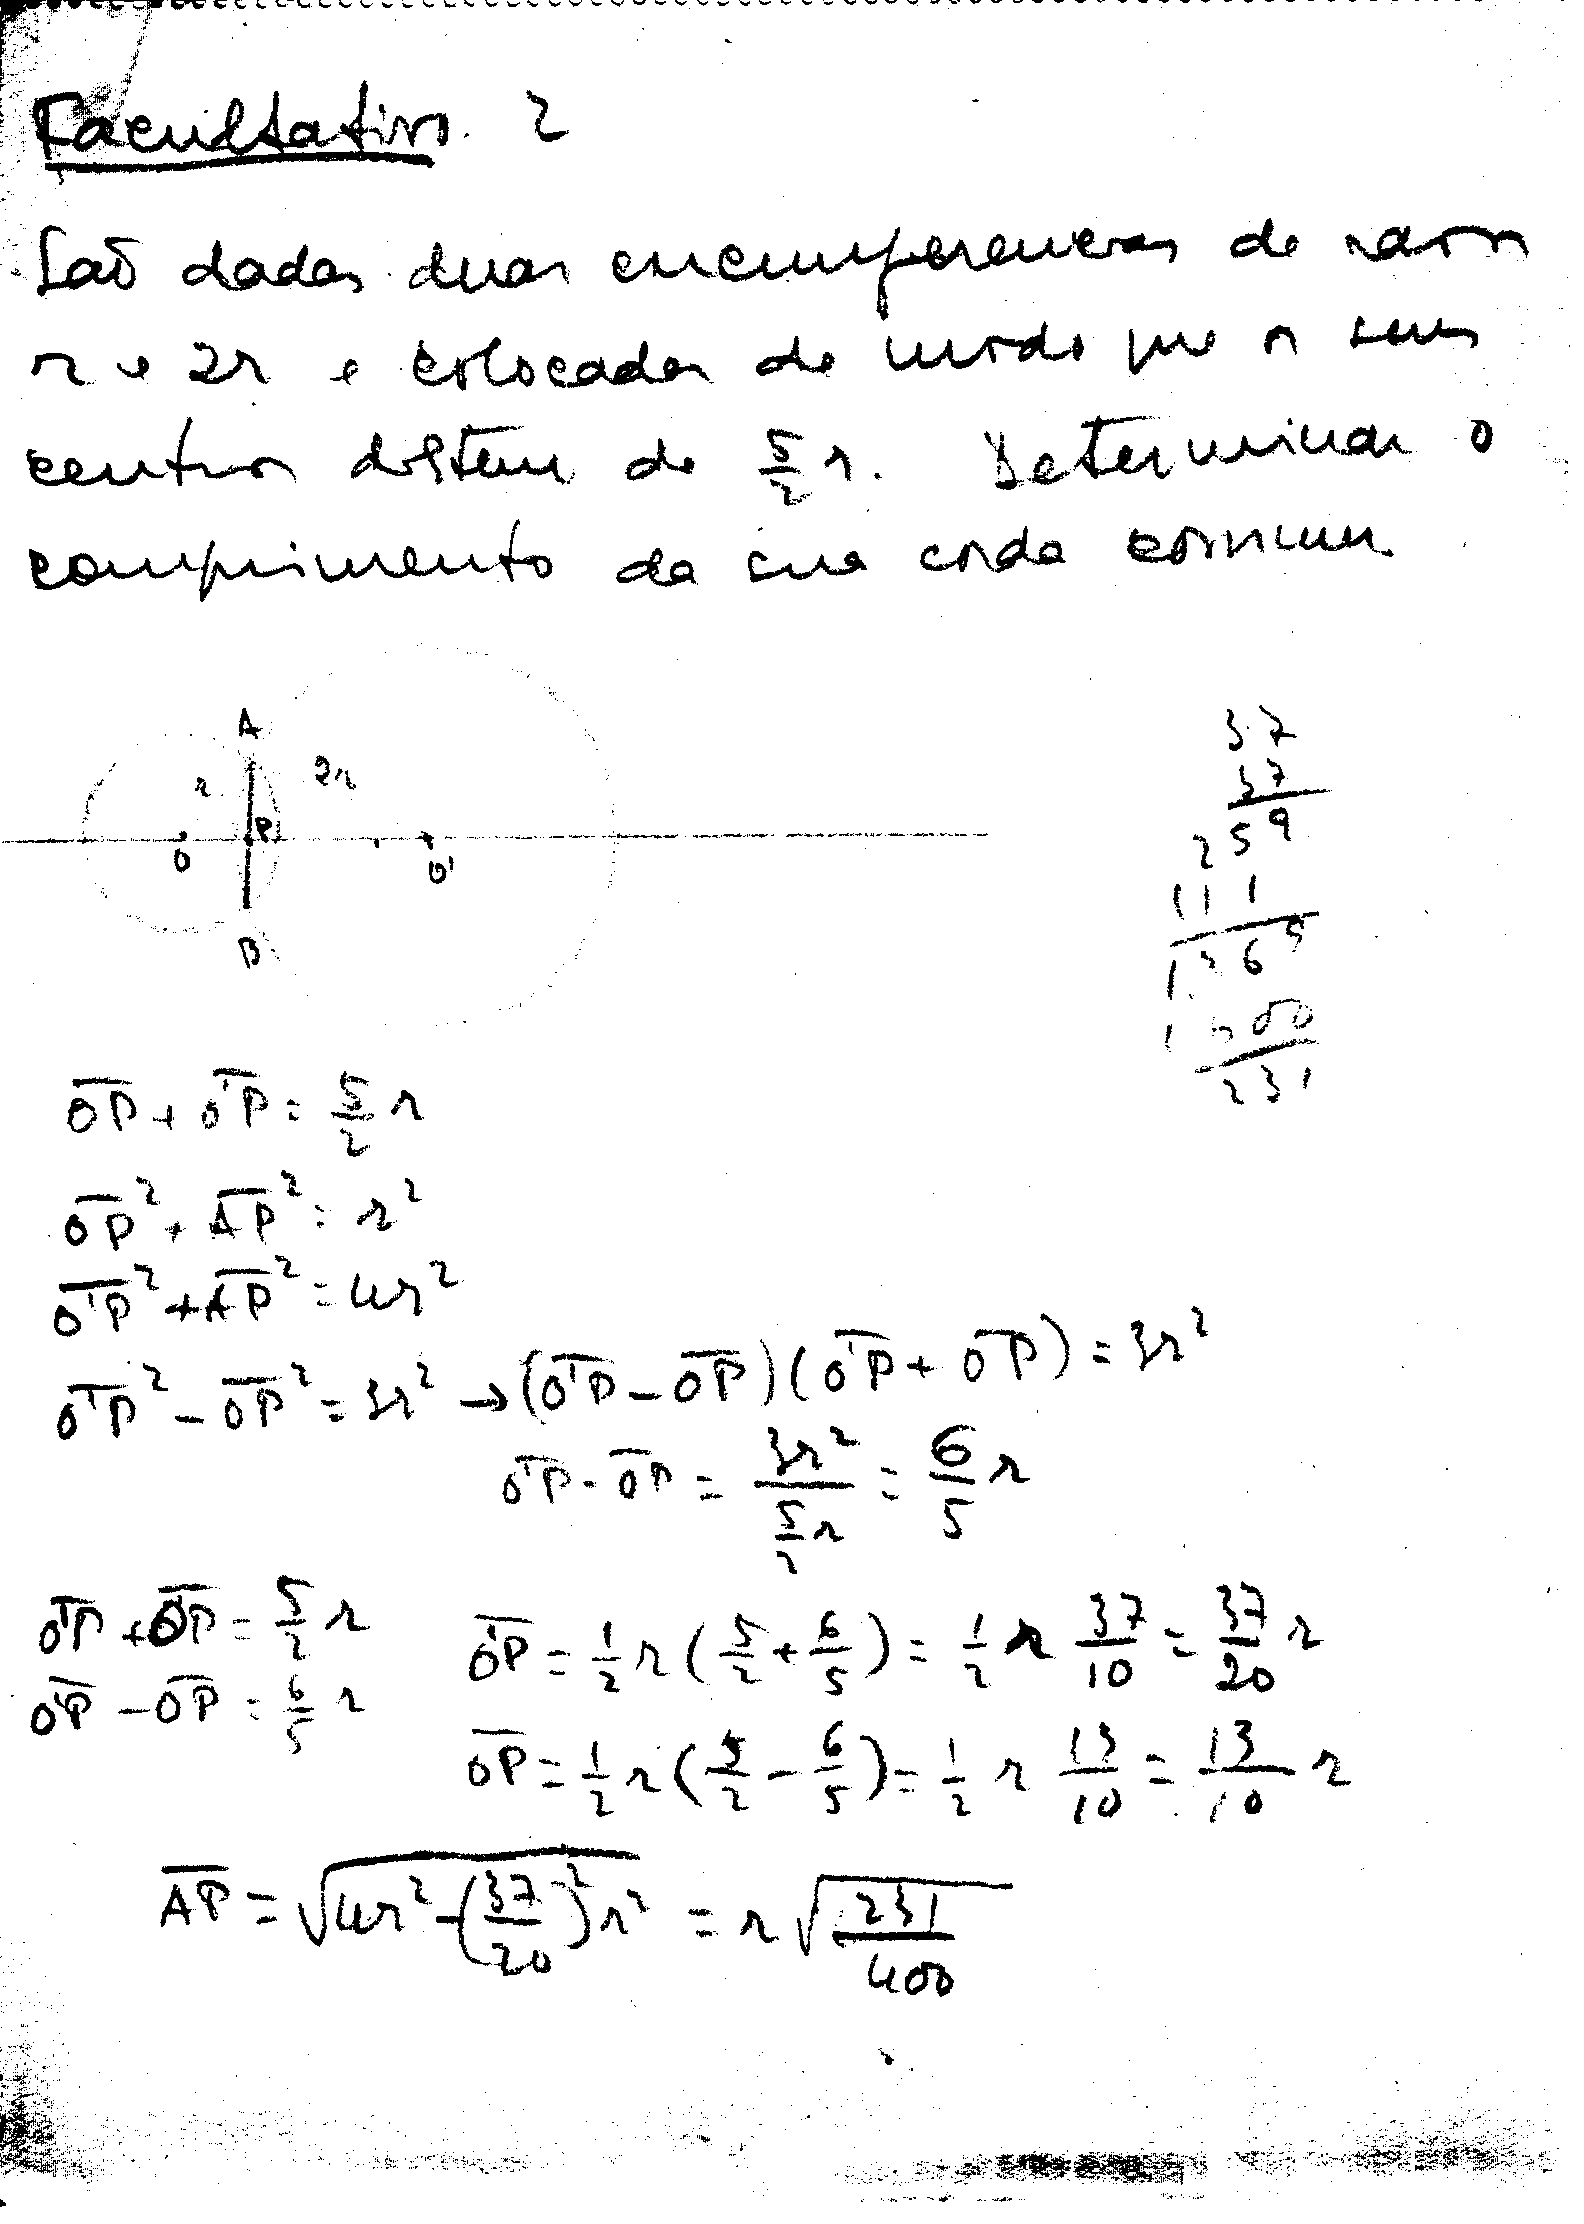 Facultativo 2
São dadas duas circunferencias de raios
r e 2r e colocadas de modo que os seus
centros distem de 5/2 r. Determinar o
comprimento da sua corda comum.
A
r 2r
P
O O'
B
37
37
259
111
1369
1600
231
OP + O'P = 5/2 r
OP² + AP² = r²
O'P² + AP² = 4r²
O'P² - OP² = 3r² → (O'P - OP)(O'P + OP) = 3r²
O'P - OP = 3r² / (5/2 r) = 6/5 r
O'P + OP = 5/2 r
O'P - OP = 6/5 r
O'P = 1/2 r (5/2 + 6/5) = 1/2 r 37/10 = 37/20 r
OP = 1/2 r (5/2 - 6/5) = 1/2 r 13/10 = 13/10 r
AP = √(4r² - (37/20)² r²) = r √(231/400)